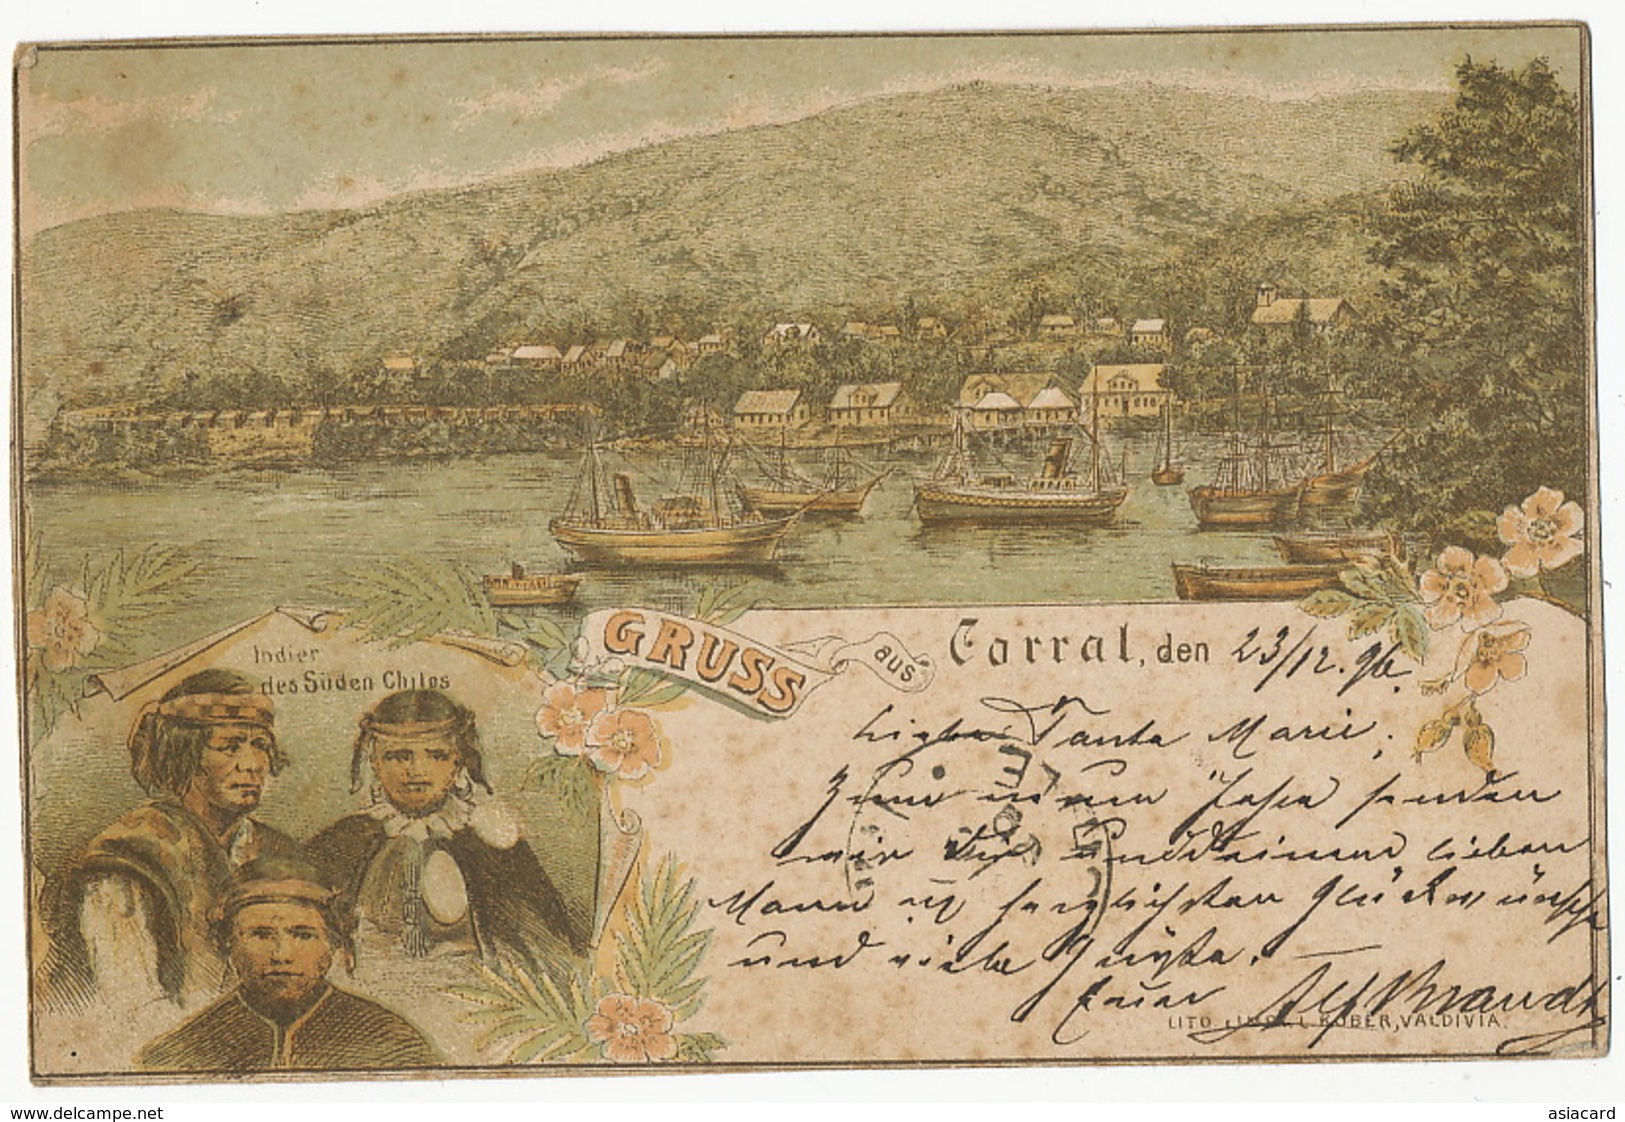 Indier
des Süden Chiles
GRUSS
aus
Corral, den 23/12. 96.
Liebe Tante Marie,
Zum neuen Jahre senden
wir Dir und Deinem lieben
Mann die herzlichsten Glückwünsche
und viele Grüße.
Euer Alf Brandt
LITO. ROBER, VALDIVIA.
www.delcampe.net
asiacard